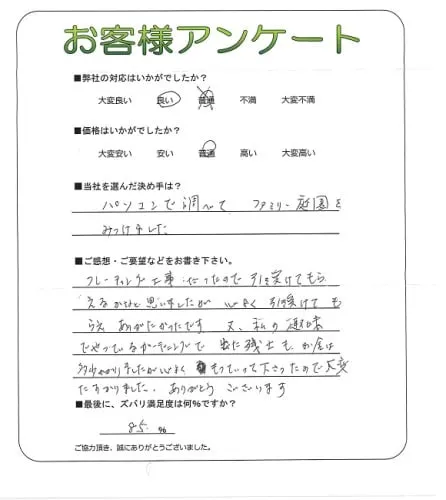 お客様アンケート
■弊社の対応はいかがでしたか?
大変良い 良い 普通 不満 大変不満
■価格はいかがでしたか?
大変安い 安い 普通 高い 大変高い
■当社を選んだ決め手は?
パソコンで調べて ファミリー庭園を
みつけました
■ご感想・ご要望などをお書き下さい。
フレーティング工事だったので引き受けてもら
えるかなと思いましたが 心よく引き受けても
らえ ありがたかったです 又、私の趣味
でやっているガーデニングで 出た残土も、お金は
多少かかりましたが心よく もっていって下さったので大変
たすかりました、ありがとう ございます
■最後に、ズバリ満足度は何%ですか?
85 %
ご協力頂き、誠にありがとうございました。